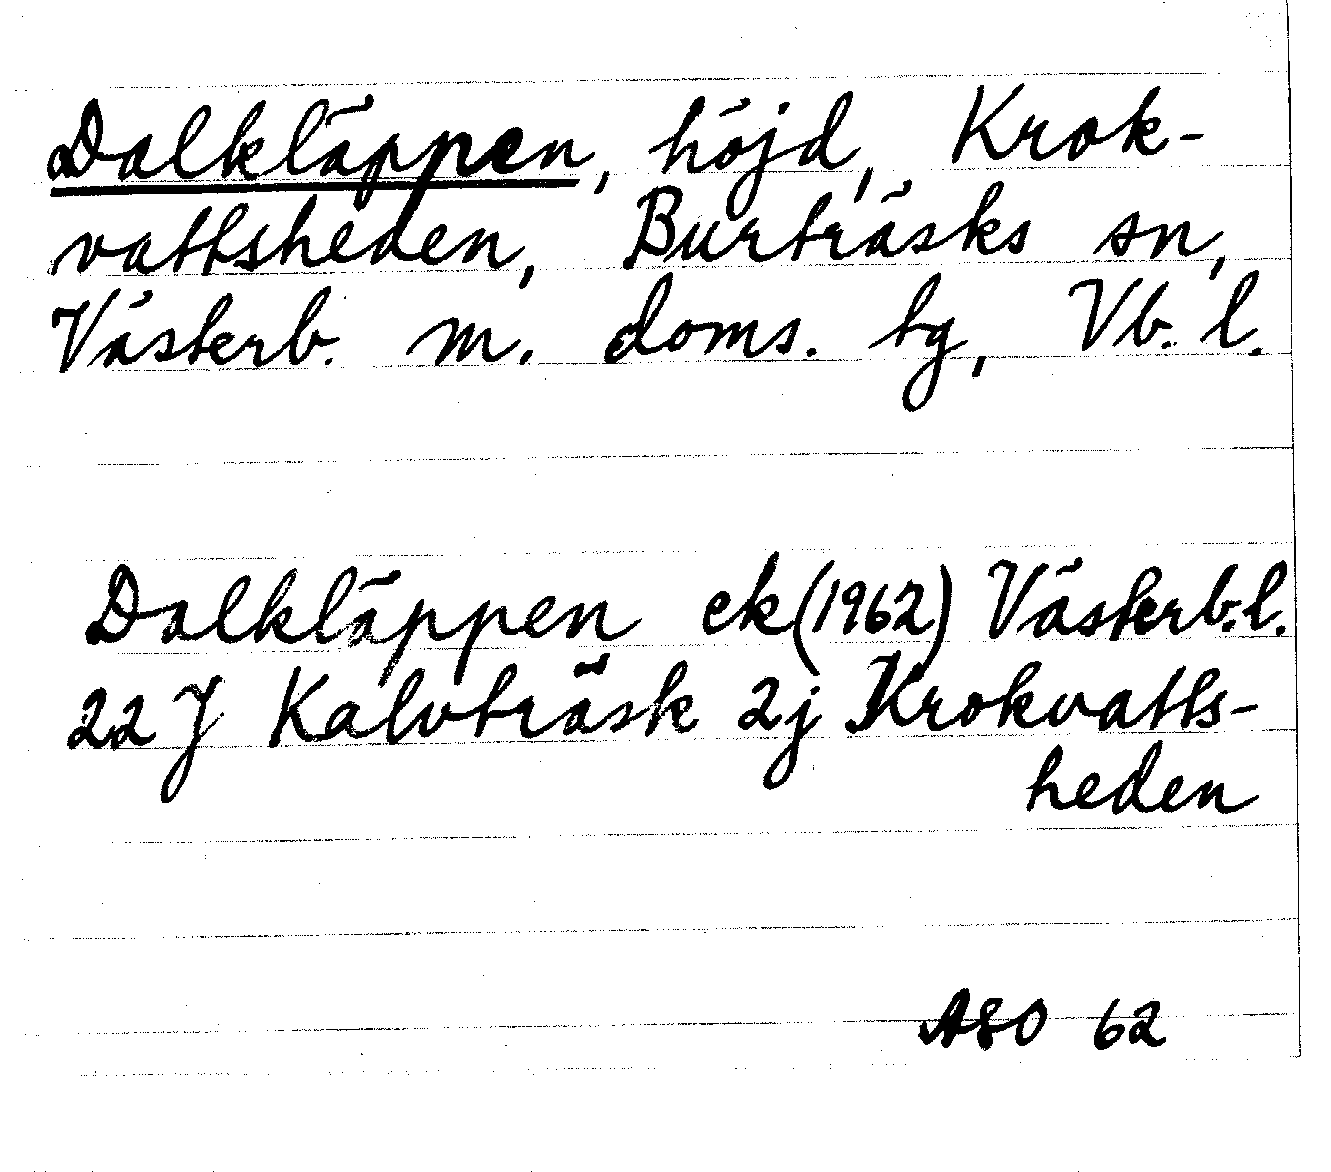 Dalkläppen, höjd, Krok-
vattsheden, Burträsks sn,
Västerb. m. doms. tg, Vb. l.
Dalkläppen ek (1962) Västerb. l.
22 J Kalvträsk 2j Krokvatts-
heden
ASO 62